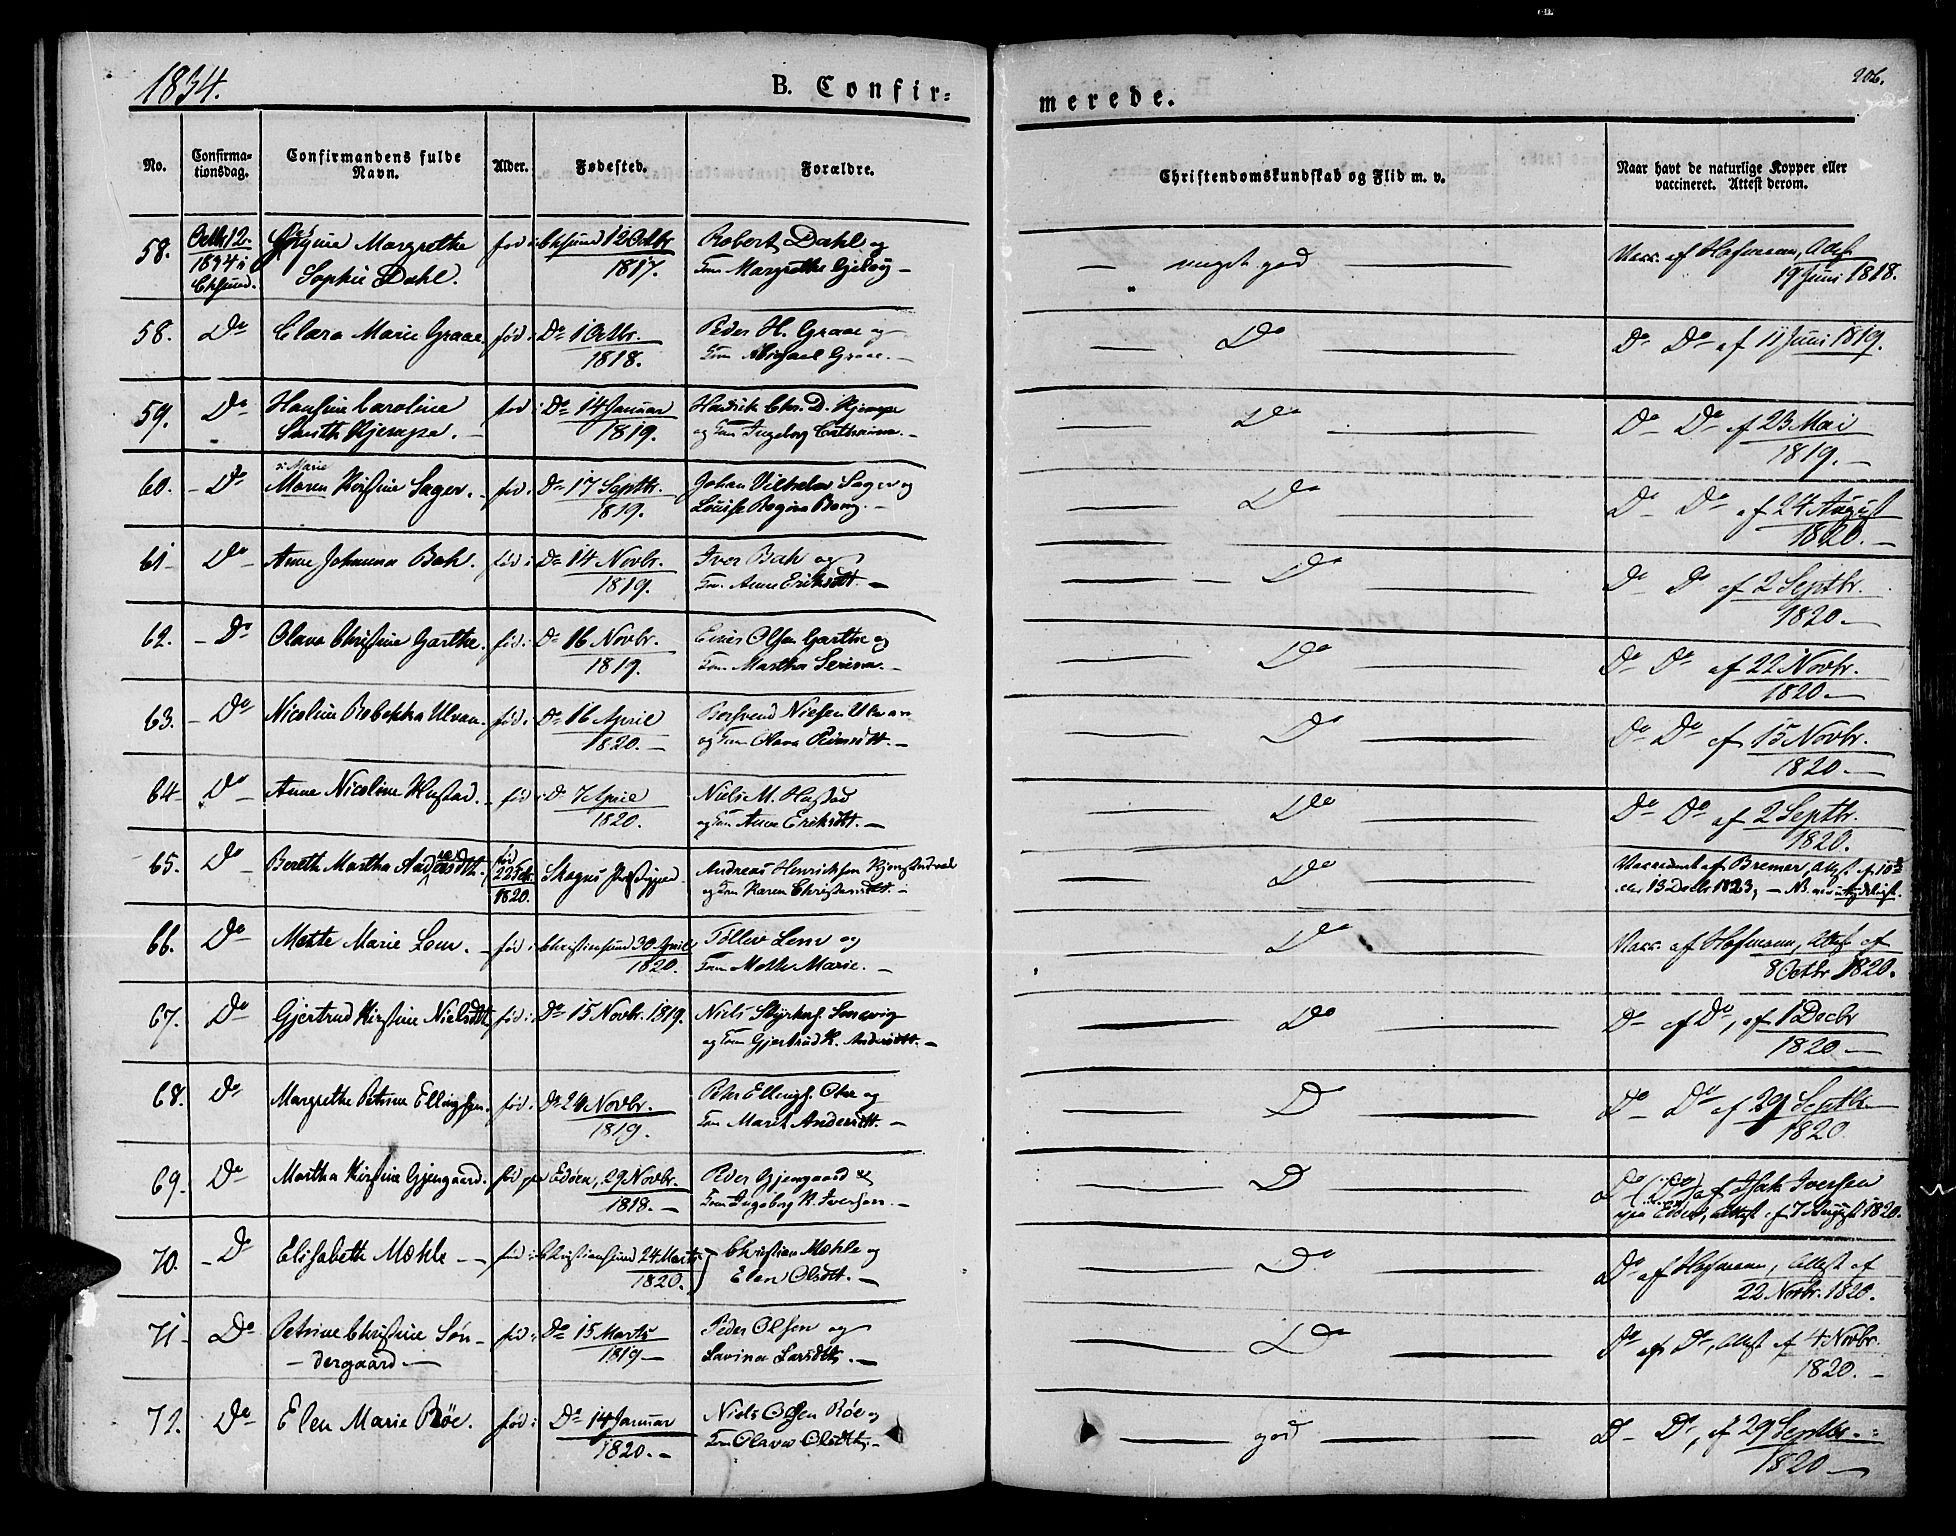 1834.
B. Confir-
merede.
206.
No.
Confirma-
tionsdag.
Confirmandens fulde
Navn.
Alder.
Fødested.
Forældre.
Christendomskundskab og Flid m. v.
Naar havt de naturlige Kopper eller
vaccineret. Attest derom.
58.
Octbr 12.
1834 i
Chsund.
Margrethe
Sophie Dahl.
fød i Chsund 12 Octbr
1817.
Robert Dahl og
Margrethe
meget god
Vacc. af Hofmann, Attest
19 Juni 1818.
58. Do Clara Marie Graae fød i Do 1 Octbr.
1818.
Peder H. Graae og
Abigael Graae.
Do
Do Do af 11 Juni 1819.
59. Do Hansine Caroline
Smith Kjempe.
fød i Do 14 Januar
1819.
Hendrik Chr. D. Kjempe
og Ingeborg Cathrina.
Do
Do Do af 23 Mai
1819.
60. Do
Marie
Maren Kirstine Sager. fød i Do 17 Septbr.
1819.
Johan Vilhelm Sager og
Louise Regina Bang.
Do
Do Do af 24 August
1820.
61 Do Anne Johanna Bak. fød i Do 14 Novbr.
1819.
Iver Bak og
Anne Eriksdtt.
Do
Do Do af 2 Septbr.
1820.
62. Do Olava Christine Garthe. fød i Do 16 Novbr.
1819.
Olsen Garthe og
Martha Serina.
Do
Do Do af 22 Novbr.
1820.
63. Do Nicoline Rebekka Ulvan. fød i Do 16 April
1820.
Nielsen Ulvan
og Olava Pedersdtt.
Do
Do Do af 15 Novbr.
1820.
64 Do Anne Nicoline Hustad. fød i D 7 April
1820.
Niels M. Hustad
og Anne Eriksdtt.
Do
Do Do af 2 Septbr.
1820.
65. Do Bereth Martha Andreasdtt.
fød
22 Febr.
1820.
Andreas Henrichsen
og Karen Christensdtt.
Do
af Bremer, Attest af
13 Decbr 1823,
66. Do Mette Marie Lem. fød i Christiansund 30 April
1820.
Tollev Lem og
Mette Marie.
Do
Vacc. af Hofmann, Attest af
8 Octbr 1820.
67. Do Gjertrud Kirstine Nielsdtt fød i Do 15 Novbr. 1819.
Niels
og Gjertrud K. Andersdtt.
Do
Do af Do, af 1 Decbr
1820
68. Do Margrethe Petrine Ellingsen. fød i Do 29 Novbr.
1819.
Peter Ellings. og
Marit Andersdtt.
D
Do Do af 29 Septbr.
1820.
69. Do Martha Kirstine Gjengaard. fød paa Edøen, 29 Novbr.
1818.
Peder Gjengaard og
Ingeborg K. Iversen.
D
Do (Do) af Isak Iversen
paa Edøen, Attest af 7 August 1820.
70. Do Elisabeth Møhle fød i Christiansund 24 Marts
1820.
Christian Møhle og
Elen Olsdtt.
Do
Do af Hofmann, Attest af
22 Novbr. 1820.
71 Do Petrine Christine Søn-
dergaard
fød i Do 15 Marts
1819
Peder Olsen og
Lavina Larsdtt.
Do
Do af Do, Attest af 4 Novbr.
1820.
72. Do Elen Marie Røe. fød i Do 14 Januar
1820.
Niels Olsen Røe og
Olava Olsdtt.
god
D Do, af 29 Septbr.
1820